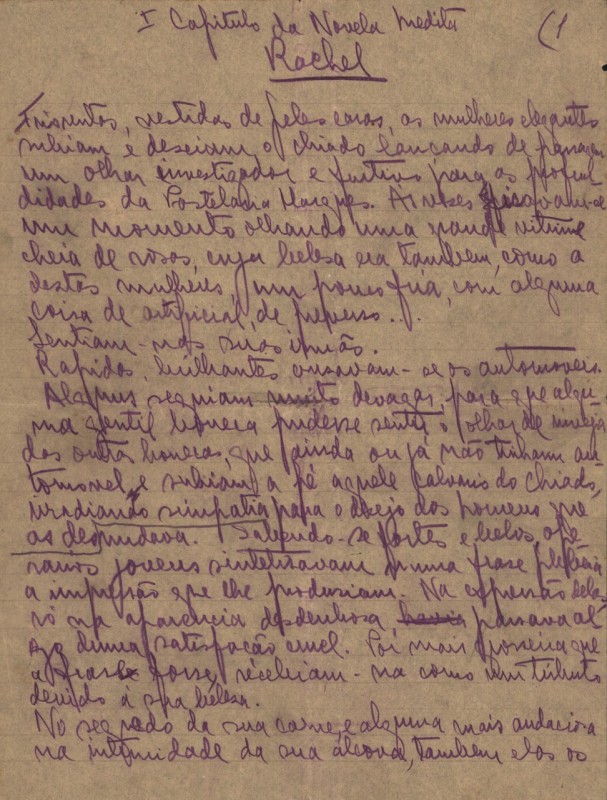 I Capitulo da Novela Inedita (1
Rachel
Friorentas, vestidas de peles caras, as mulheres elegantes
subiam e desciam o Chiado lançando de passagem
um olhar investigador e furtivo para as profun
didades da Pastelaria Marques. Às vezes fixavam-se
um momento olhando uma grande vitrine
cheia de rosas, cuja beleza era tambem, como a
destas mulheres um pouco fria, com alguma
coisa de artificial, de preverso...
Sentiam-nas suas irmãs.
Rapidos, brilhantes cruzavam-se os automoveis.
Alguns seguiam muito devagar, para que algu-
ma gentil boneca pudesse sentir o olhar de inveja
das outras bonecas, que ainda ou já não tinham au-
tomovel e subiam a pé aquele calvario do Chiado,
irradiando simpatia para o desejo dos homens que
as desnudava. Sabendo-se fortes e belos, os
varios jovens sintetisavam numa frase plebeia
a impressão que lhe produziam. Na expressão delas
só na aparencia desdenhosa havia passava al
go duma satisfação cruel. Por mais grosseira que
a frase fosse, recebiam-na como um tributo
devido á sua beleza.
No segredo da sua carne, e alguma mais audaciosa
na intimidade da sua alcova, tambem elas os